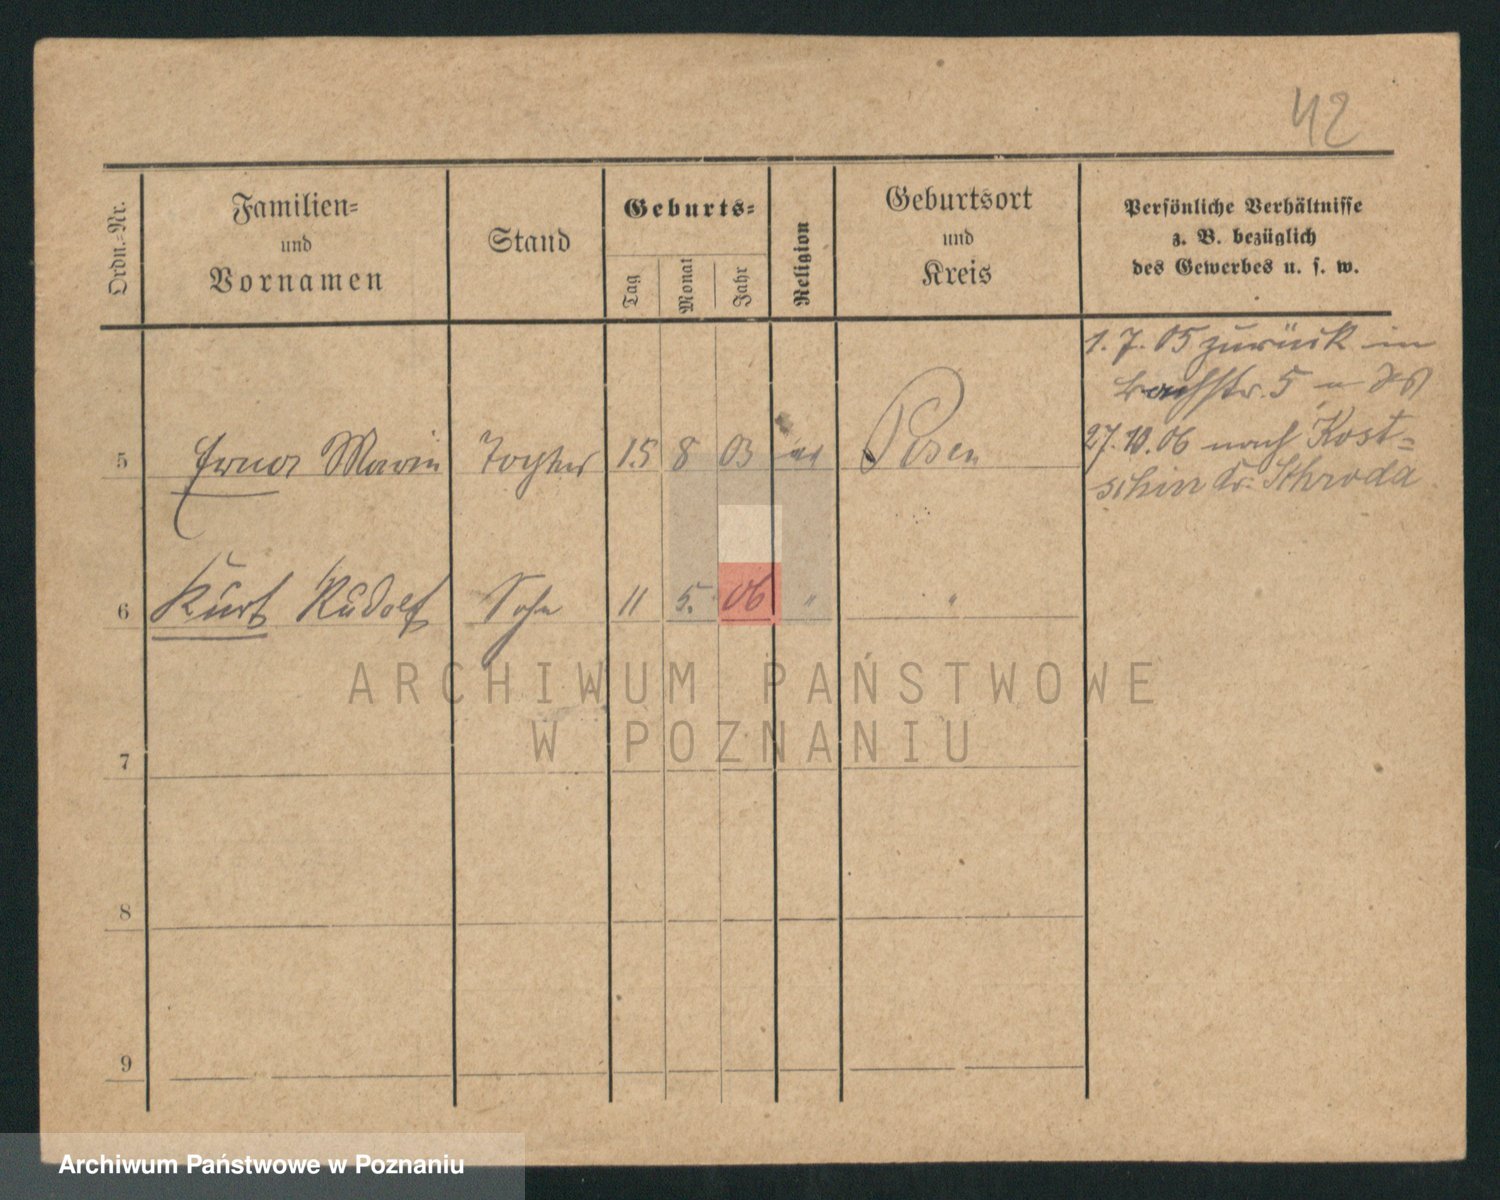 42
Ordn.-Nr.
Familien-
und
Vornamen
Stand
Geburts-
Tag
Monat
Jahr
Religion
Geburtsort
und
Kreis
Persönliche Verhältnisse
z. B. bezüglich
des Gewerbes u. s. w.
1. 7. 05 zurück in
Bachstr. 5
27. 10. 06 nach Kost-
schin Kr. Schroda
5 Erna Marie Tochter 15 8 03 Posen
6 Kurt Rudolf Sohn 11 5. 06 " "
ARCHIWUM PAŃSTWOWE
W POZNANIU
7
8
9
Archiwum Państwowe w Poznaniu